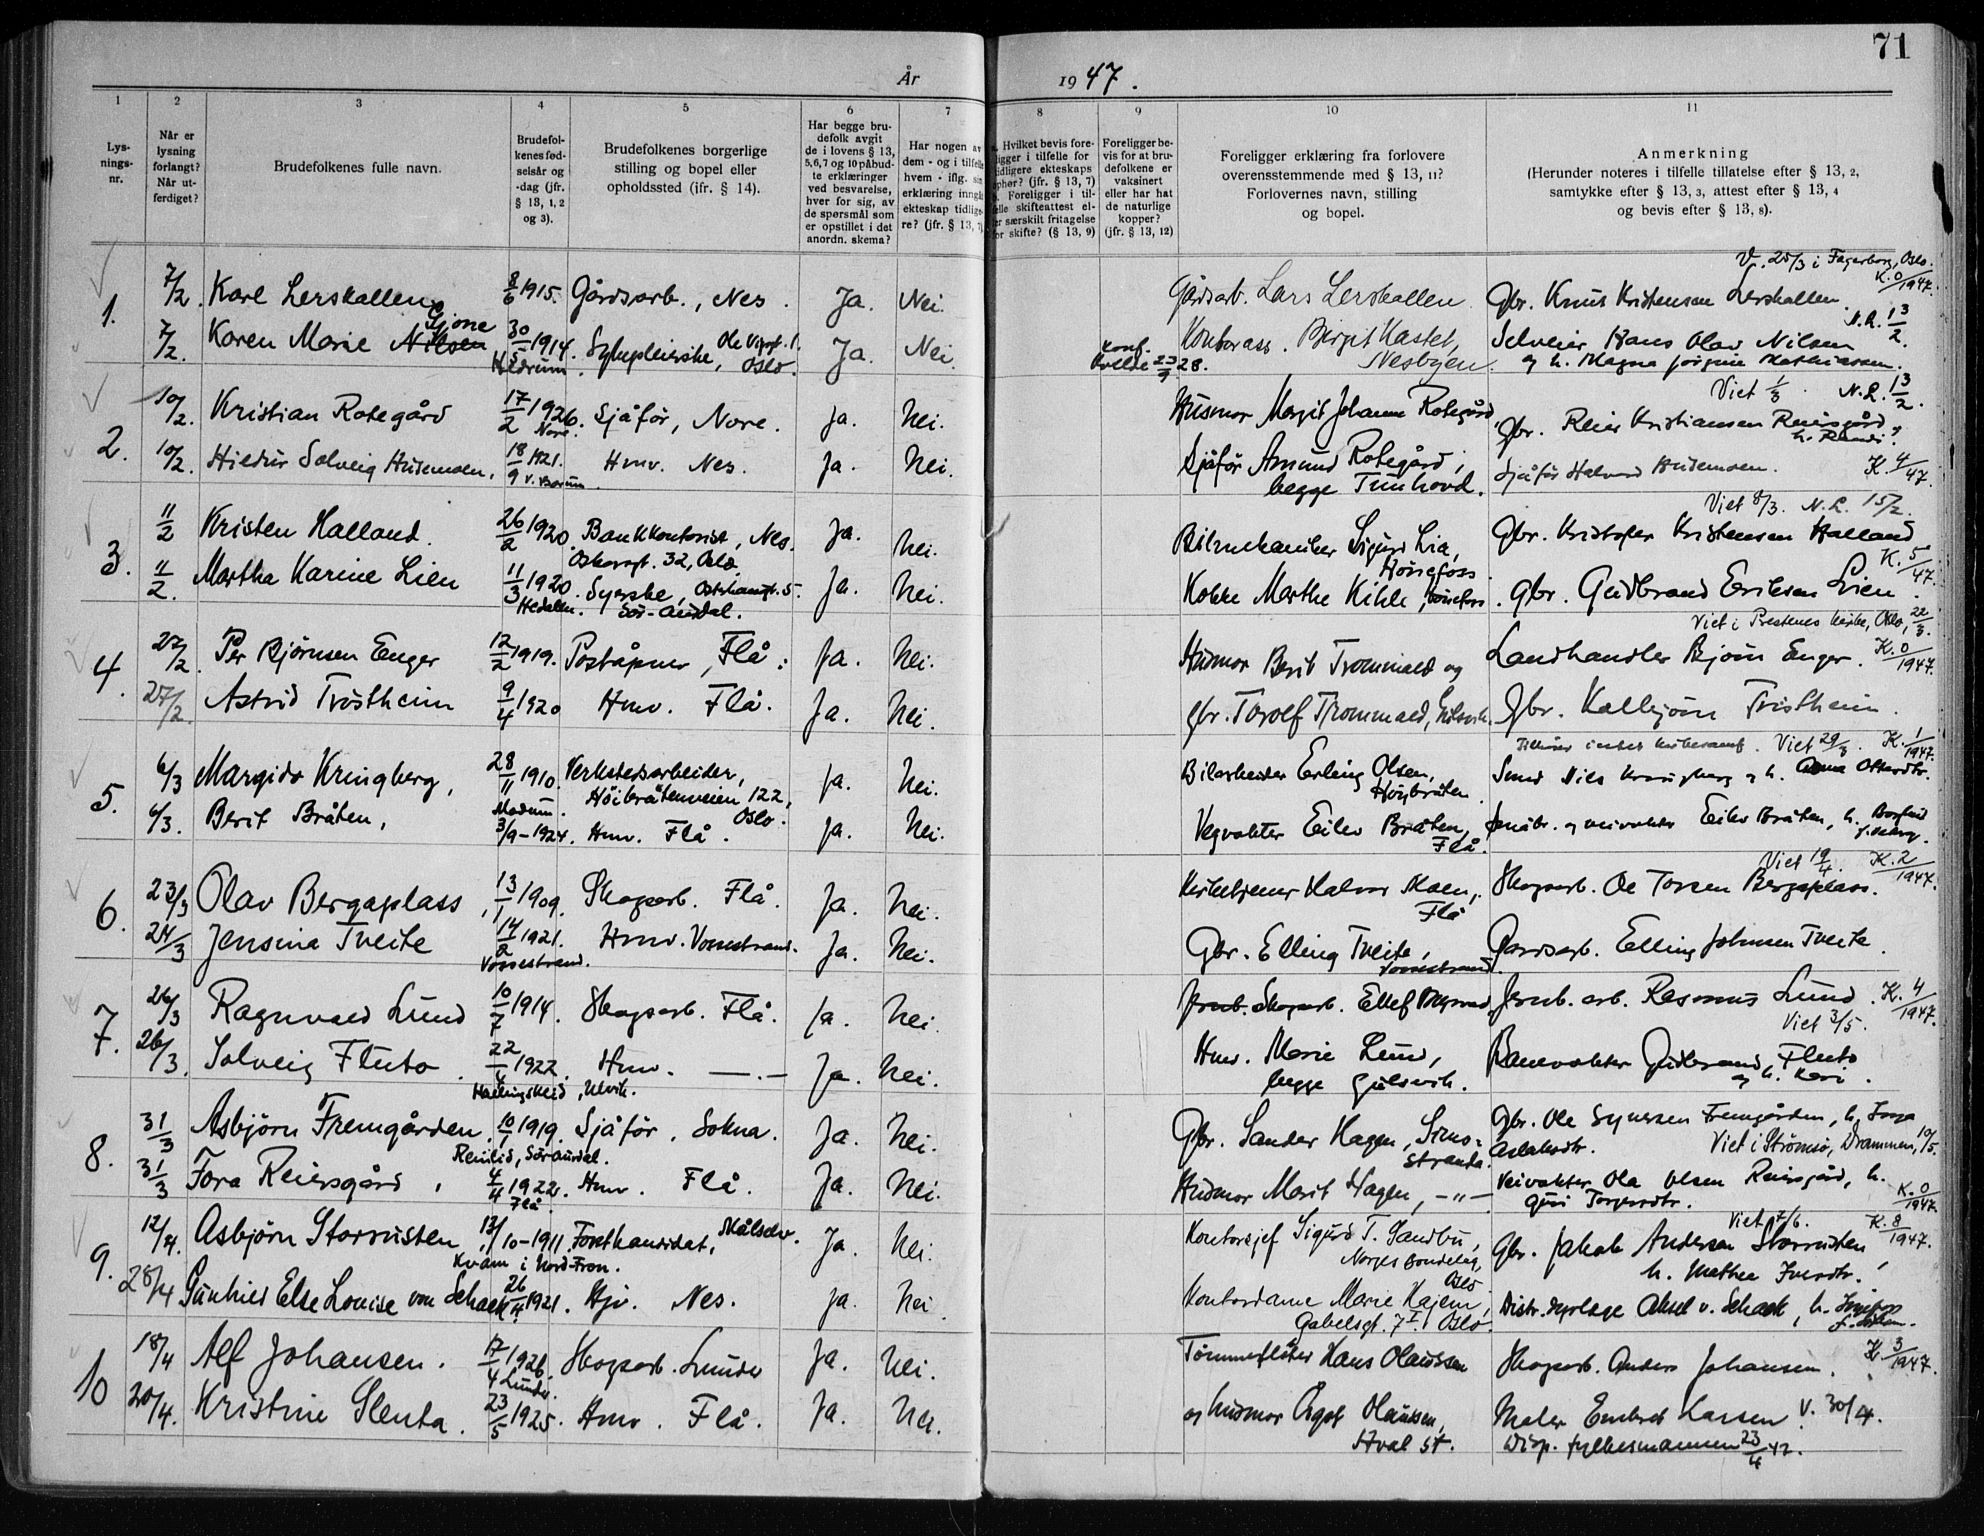 71
År 1947.
1 2 3 4 5 6 7 8 9 10 11
Lys-
nings-
nr.
Når er
lysning
forlangt?
Når ut-
ferdiget?
Brudefolkenes fulle navn.
Brudefol-
kenes fød-
selsår og
-dag (jfr.
§ 13, 1, 2
og 3).
Brudefolkenes borgerlige
stilling og bopel eller
opholdssted (jfr. § 14).
Har begge bru-
defolk avgit
de i lovens § 13,
5,6,7 og 10 påbud-
te erklæringer
ved besvarelse,
hver for sig, av
de spørsmål som
er opstillet i det
anordn. skema?
Har nogen av
dem - og i tilfelle
hvem - iflg. sin
erklæring inngåt
ekteskap tidlige-
re? (jfr. § 13, 7)
Hvilket bevis fore-
ligger i tilfelle for
tidligere ekteskaps
ophør? (jfr. § 13, 7)
Foreligger i til-
felle skifteattest el-
ler særskilt fritagelse
for skifte? (§ 13, 9)
Foreligger be-
vis for at bru-
defolkene er
vaksinert
eller har hat
de naturlige
kopper?
(jfr. § 13, 12)
Foreligger erklæring fra forlovere
overensstemmende med § 13, 11?
Forlovernes navn, stilling
og bopel.
Anmerkning
(Herunder noteres i tilfelle tillatelse efter § 13, 2,
samtykke efter § 13, 3, attest efter § 13, 4
og bevis efter § 13, 8).
V. 25/3 i Fagerborg, Oslo.
K. 0/1947.
1. 7/2. Karl Lerskallen 8/6 1915. Gårdsarb., Nes. Ja. Nei. Gårdsarb. Lars Lerskallen Gbr. Knut Kristensen Lerskallen
N.L. 13/2.
7/2. Karen Marie Nilsen Gjone 30/5 1914. Sykepleierske, Ole Vigsgt. 1. Oslo. Ja. Nei. Kontorass. Birgit Hastet, Selveier Hans Olav Nilsen
Hedrum. Konf. Kvelde 23/9 28. Nesbyen. og h. Magna Jørgine Mathiassen.
Viet 1/3. N.L. 13/2.
2. 10/2. Kristian Rotegård 17/2 1926. Nore. Sjåfør, Nore. Ja. Nei. Husmor Margit Johanne Rotegård Gbr. Reier Kristiansen Reiersgård,
h. Randi.
10/2. Hildur Solveig Husemoen, 18/9 1921. V. Bærum Hmv. Nes. Ja. Nei. Sjåfør Amund Rotegård, Sjåfør Halvard Husemoen. K. 4/47.
begge Tunhovd.
Viet 8/3. N.L. 15/2.
3. 11/2 Kristen Halland. 26/2 1920. Bankkontorist, Nes. Ja. Nei. Bilmekaniker Sigurd Lia, Gbr. Kristofer Kristensen Halland
Oskarsgt. 32, Oslo Hønefoss. K. 5/47.
11/2. Martha Karine Lien 11/3 1920. Syerske, Ja. Nei. Kokke Marthe Kihle, Hønefoss. Gbr. Gudbrand Eriksen Lien.
Hedalen. Sør-Aurdal.
Viet i Prestenes kirke, Oslo, 22/3.
4. 27/2. Per Bjørnsen Enger 12/2 1919. Poståpner, Flå. Ja. Nei. Husmor Berit Trommald og Landhandler Bjørn Enger. K. 0/1947.
27/2. Astrid Trostheim 9/4 1920 Hmv. Flå. Ja. Nei. gbr. Torolf Trommald, Gulsvik. Gbr. Kallbjørn Trostheim.
Viet 29/3. K. 1/1947.
5. 6/3 Margido Kringberg, 28/11 1910. Verkstedsarbeider, Ja. Nei. Bilarbeider Erling Olsen, Smed Nils Kringberg og h. Anna Ottardtr.
Modum. Høibråtenveien 122, Oslo. Høybråten.
6/3. Berit Bråten, 3/9-1924. Hmv. Flå. Ja. Nei. Vegvokter Eilev Bråten, Småbr. og veivokter Eilev Bråten, h.
Flå.
Viet 19/4. K. 2/1947.
6. 23/3 Olav Bergaplass 13/1 1909. Skogsarb. Flå. Ja. Nei. Kirketjener Halvor Moen, Skogsarb. Ole Torsen Bergaplass.
Flå
24/3 Jensina Tveite 14/2 1921. Hmv. Vossestrand. Ja. Nei. Gbr. Elling Tveite, Gardsarb. Elling Johnsen Tveite.
Vossestrand. Vossestrand.
7. 26/3 Ragnvald Lund 10/7 1914. Skogsarb. Flå. Ja. Nei. Skogsarb. Ellef Jernb. arb. Rasmus Lund. K. 4/1947.
Viet 3/5.
26/3. Solveig Fluto. 22/4 1922. Hmv. —.— Ja. Nei. Hmv. Marie Lund, Banevokter Gudbrand Fluto
Hallingskeid, Ulvik. begge Gulsvik. og h. Kari.
8. 31/3 Asbjørn Fremgården. 10/1 1919. Sjåfør. Sokna. Ja. Nei. Gbr. Sander Hagen, Strømsø, Gbr. Ole Syversen Fremgården, h. Inga
Reinlid, Søraurdal. Aslaksdtr. Viet i Strømsø, Drammen, 10/5.
31/3 Tora Reiersgård, 4/4 1922. Hmv. Flå. Ja. Nei. Husmor Marit Hagen, —"— Veivokter Ola Olsen Reiersgård, h.
Flå. Guri Torgersdtr. K. 0/1947.
Viet 7/6. K. 8/1947.
9. 12/4. Asbjørn Storrusten, 13/10-1911. Forstkandidat, Målselv. Ja. Nei. Kontorsjef Sigurd T. Sandbu, Gbr. Jakob Andersen Storrusten,
Kvam i Nord-Fron. Norges Bondelag, Oslo h. Mathea Iversdtr.
28/4 Gunhild Else Louise von Schack. 26/4 1921. Hjv. Nes. Ja. Nei. Kontordame Marie Hajem, Distr. dyrlege Aksel v. Schack, h.
Gabelsgt. 7 I Oslo.
10 18/4 Alf Johansen. 17/4 1926. Skogsarb. Lunder Ja. Nei. Tømmerfløter Hans Olaussen Skogsarb. Anders Johansen. K. 3/1947.
Lunder.
20/4. Kristine Slenta. 23/5 1925. Hmv. Flå. Ja. Nei. og husmor Ågot Olaussen, Maler Embret Larsen V. 30/4.
Hval st. Disp. fylkesmannen 23/4 47.